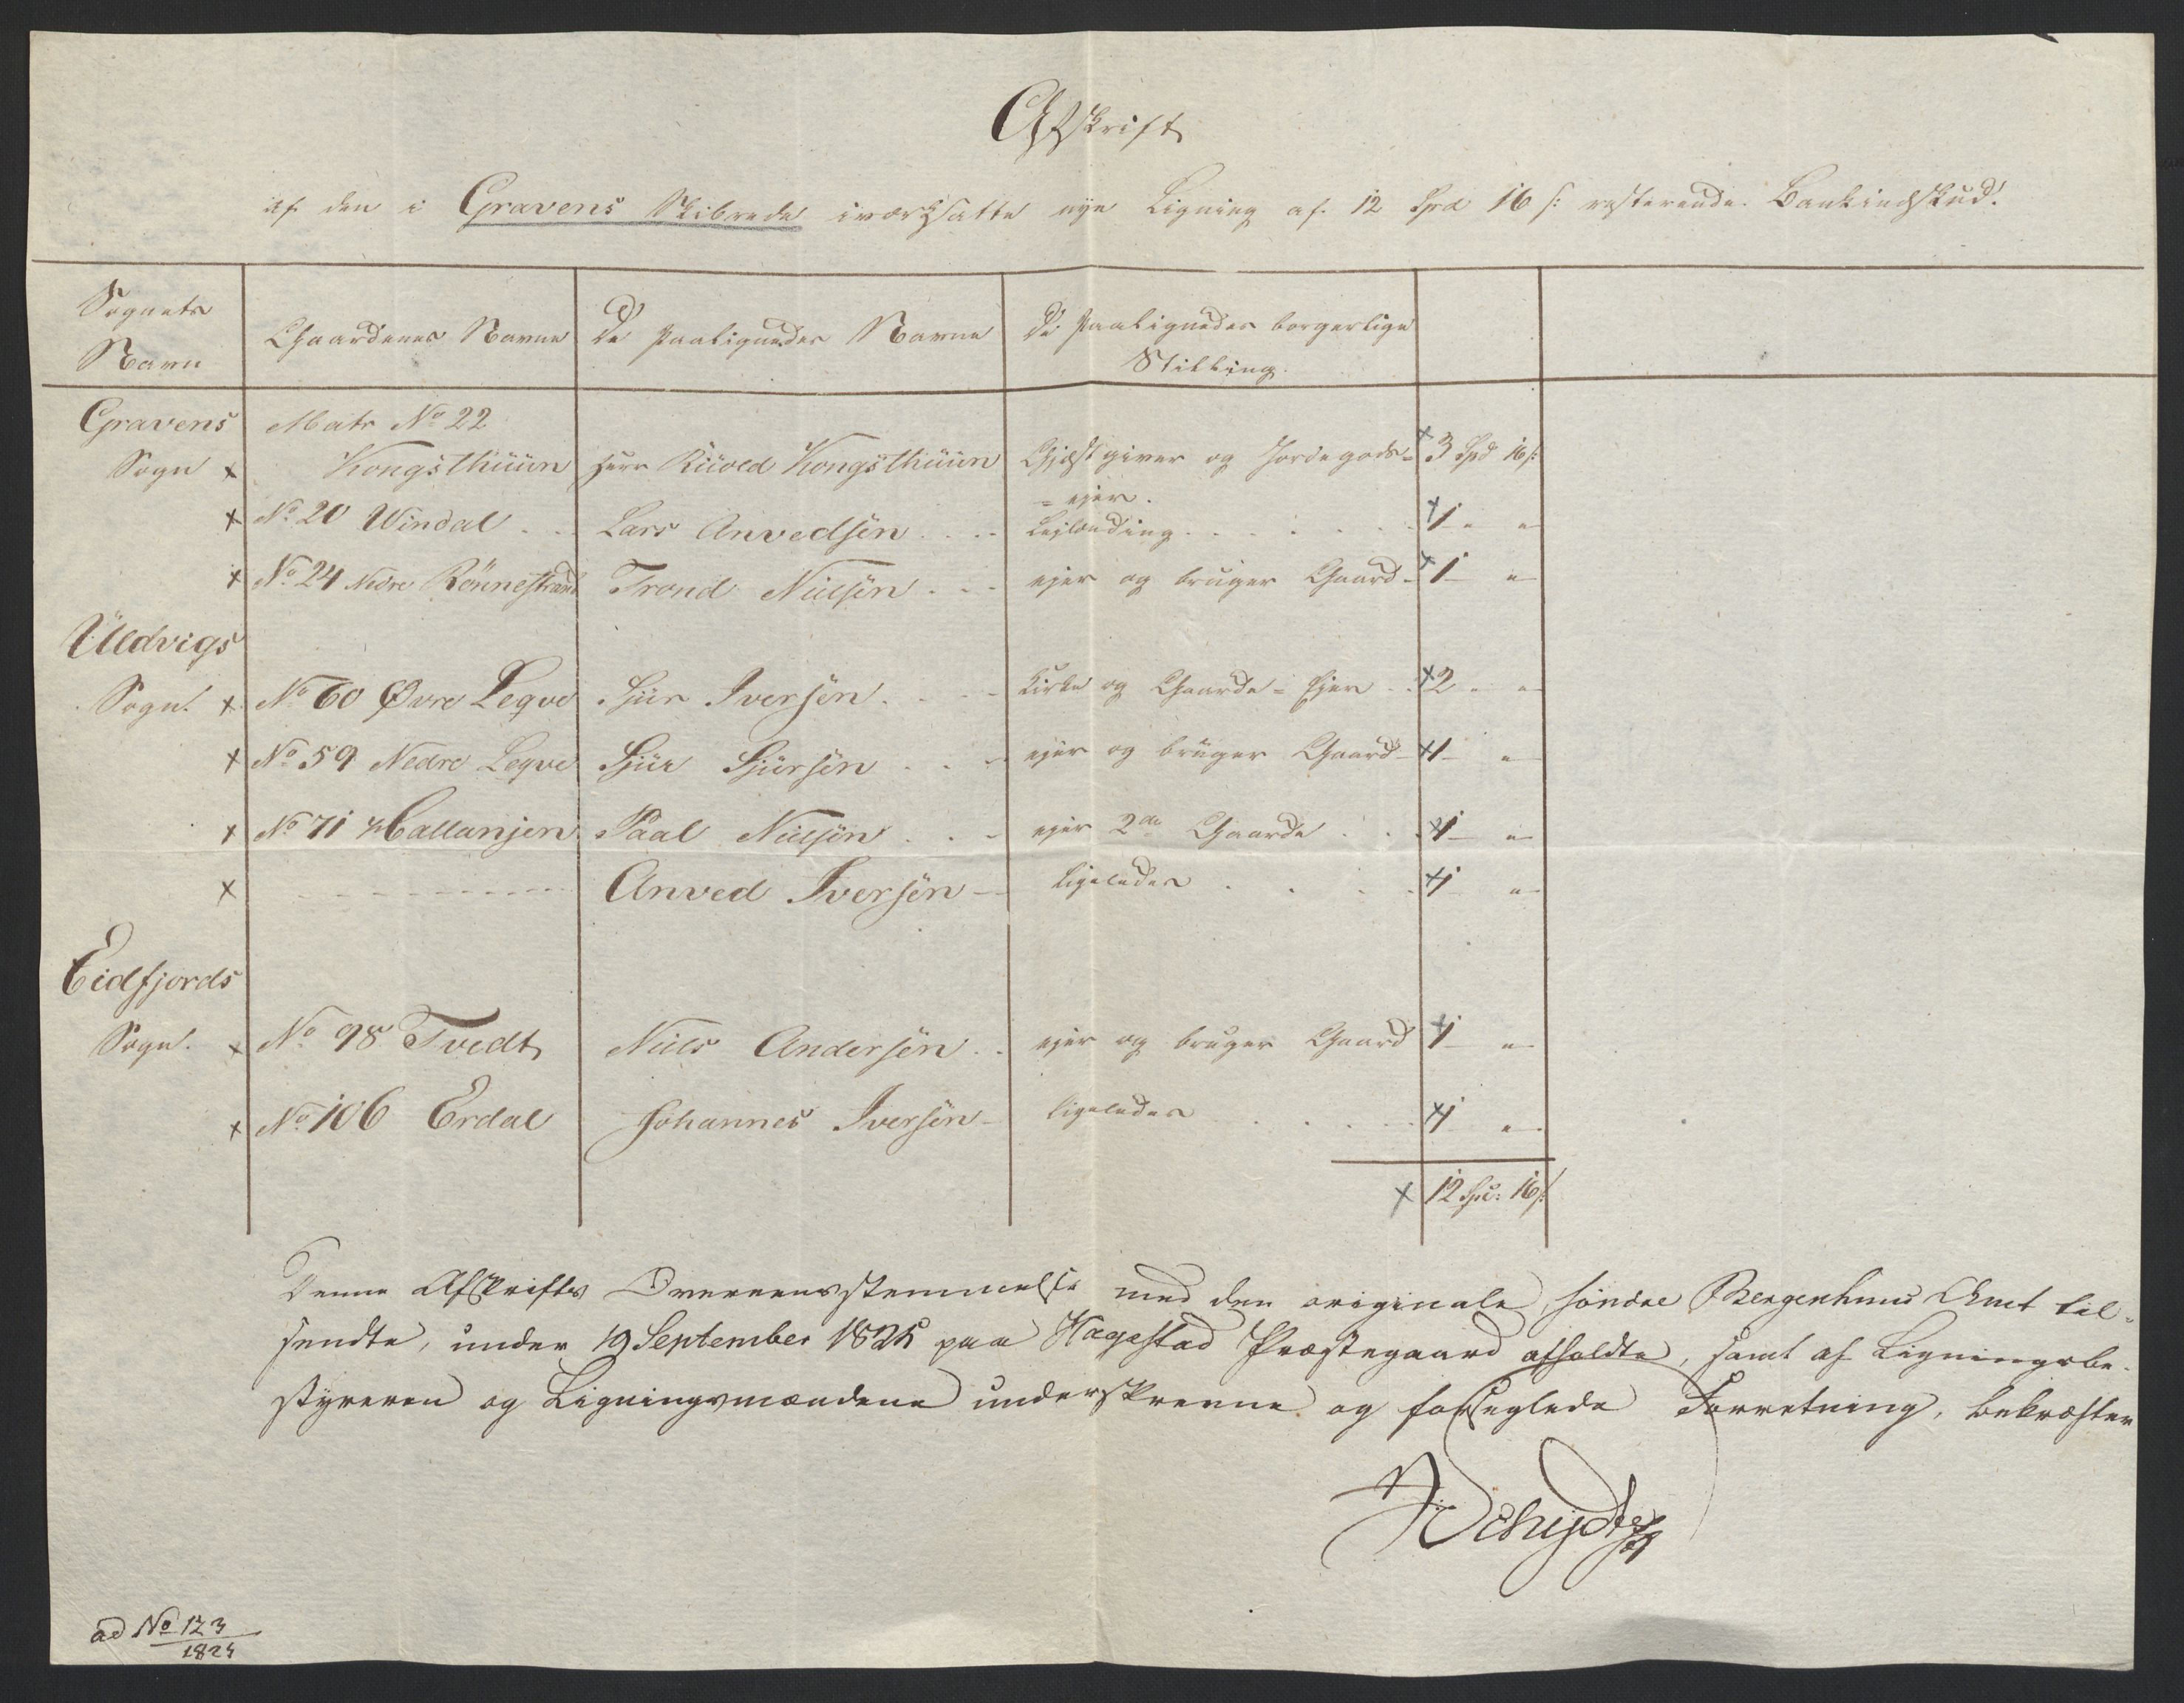 Afskrift
af den i Gravens Skibrede iværksatte nye Ligning af 12 Spd 16 s: resterende Bankindskud.
Sognets Navn | Gaardenes Navne | De Paalignedes Navne | De Paalignedes borgerlige Stilling
Gravens | Matr No 22
Sogn x | Kongsthuun | Herr Kongsthuun | Gjæstgiver og Jordegods- | x 3 Spd 16 s:
= ejer.
x | No 20 Windal . . | Lars Anvedsen . . . . | Lejlænding . . . . . | x 1 " "
x | No 24 Nedre Rönnestrand | Trond Nielsen . . . | ejer og bruger Gaard - | x 1 - "
Uldvigs
Sogn. x | No 60 Øvre Leqve | Sjur Iversen . . . | Kirke og Gaarde = Ejer . . | x 2 " "
x | No 59 Nedre Leqve | Sjur Sjursen . . . | ejer og bruger Gaard | x 1 - "
x | No 71 Hallanjen | Paal Nielsen . . . | ejer 2de Gaarde . . . | x 1 - "
x | - - - - - - - - | Anved Iversen - | ligeledes . . . . | x 1 "
Eidfjords
Sogn. x | No 98 Tvedt | Niels Andersen . . | ejer og bruger Gaard | x 1 - "
x | No 106 Erdal | Johannes Iversen - | ligeledes . . . . | x 1 "
x | 12 Spd: 16 s:
Denne Afskrifts Overeensstemmelse med den originale, søndre Bergenhuus Amt til-
sendte, under 19 September 1825 paa Hagestad Præstegaard afholdte, samt af Ligningsbe-
styreren og Ligningsmændene underskrevne og forseglede Forretning, bekræfter
Schydtz
ad No 123
1824